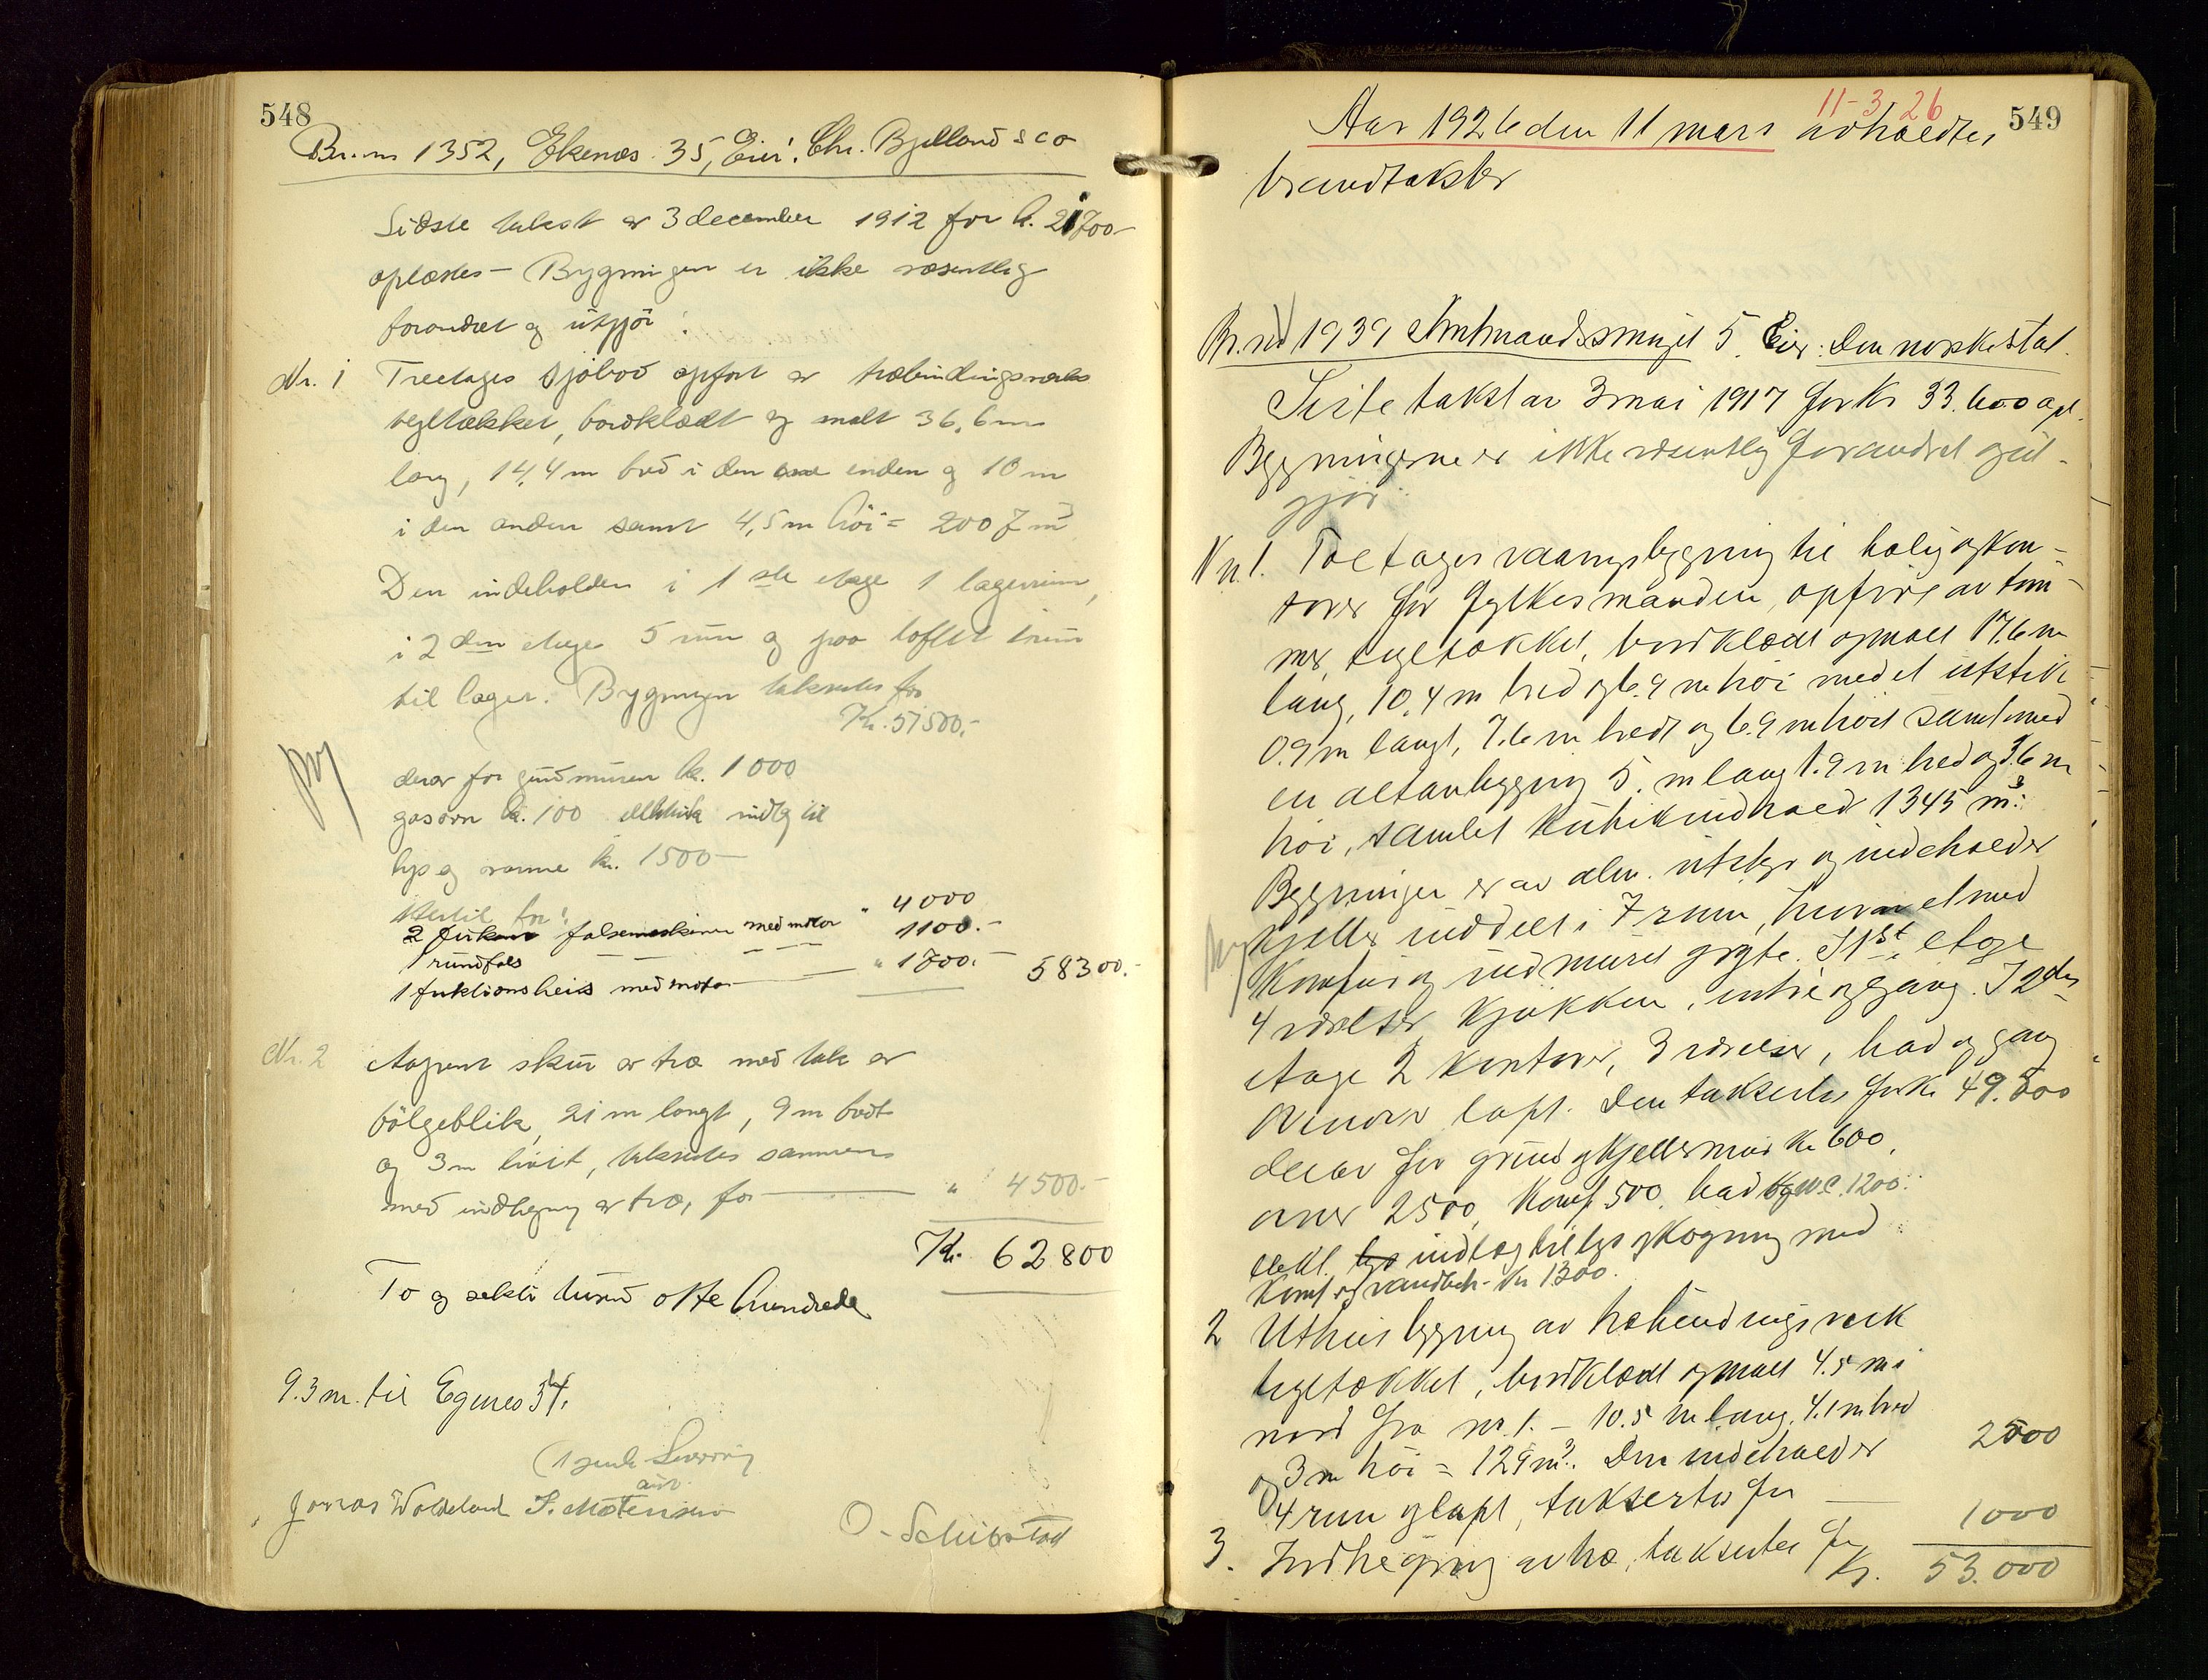 548
Br. nr 1352, Ekenæs 35, Eier: Chr. Bjelland & Co
Sidste takst av 3 december 1912 for kr. 21700-
oplæstes – Bygningen er ikke væsentlig
forandret og utgjør:
Nr. 1 Treetages sjøbod opført av træbindingsverk
tegltækket, bordklædt og malt 36,6 m
lang, 14,4 m bred i den ene enden og 10 m
i den anden samt 4,5 m høi = 2007 m³
Den indeholder i 1ste etage 1 lagerrum,
i 2den etage 5 rum og paa loftet 1 rum
til lager. Bygningen takseres for
Kr. 51500,-
derav for grundmuren kr. 1000
gasovn kr. 100 elektrisk indlæg til
lys og varme kr. 1500-
Hertil for:
2 falsemaskiner med motor " 4000
1 rundfals — — — 1100.-
1 friktionsheis med motor — " 1700.- 58300.-
Nr. 2 Aapent skur av træ med tak av
bølgeblik, 21 m langt, 9 m bredt
og 3 m høit, takseres sammen
med indhegning av træ, for — " 4500.-
Kr. 62800
To og seksti tusind otte hundrede
9.3 m. til Egenes 37.
Jonas Woldeland S. Mortensen
O. Schibstad
549
11-3 26
Aar 1926 den 11 mars avholdtes
brandtakster
Br. nr 1939 Amtmandssmuget 5. Eier: Den norske stat.
Siste takst av 3 mai 1917 for Kr 33.600 opl.
Bygningerne er ikke væsentlig forandret og ut-
gjør:
Nr. 1. Toetages vaaningsbygning til bolig og kon-
torer for fylkesmanden, opført av tøm-
mer, tegltækket, bordklædt og malt 17.6 m
lang, 10.4 m bred og 6.9 m høi med et utstik
0.9 m langt, 7.6 m bredt og 6.9 m høit samt med
en altanbygning 5. m lang 1.9 m bred og 3.6 m
høi, samlet kubikindhold 1345 m³.
Bygningen er av alm. utstyr og indeholder
kjelder inddelt i 7 rum, hvorav et med
komfur og indmuret gryte. I 1st. etage
4 værelser, kjøkken, entre og gang. I 2den
etage 2 kontorer, 3 værelser, bad og gang
Ovenover loft. Den takseres for Kr 49.500
derav for grund og kjeldermur Kr 600,
ovner 2500, Komf. 500. bad og w.c. 1200.
elekt. indlæg til lys og kogning med
Komf. og vandbeh. Kr 1300.
2 Uthusbygning av træbindingsverk
tegltækket, bordklædt og malt 4.5 m i
nord fra nr. 1. – 10.5 m lang, 4.1 m bred
og 3 m høi = 129 m³. Den indeholder
4 rum og loft, takseres for — 2500
3. Indhegning av træ, takseres for 1000
Kr. 53.000